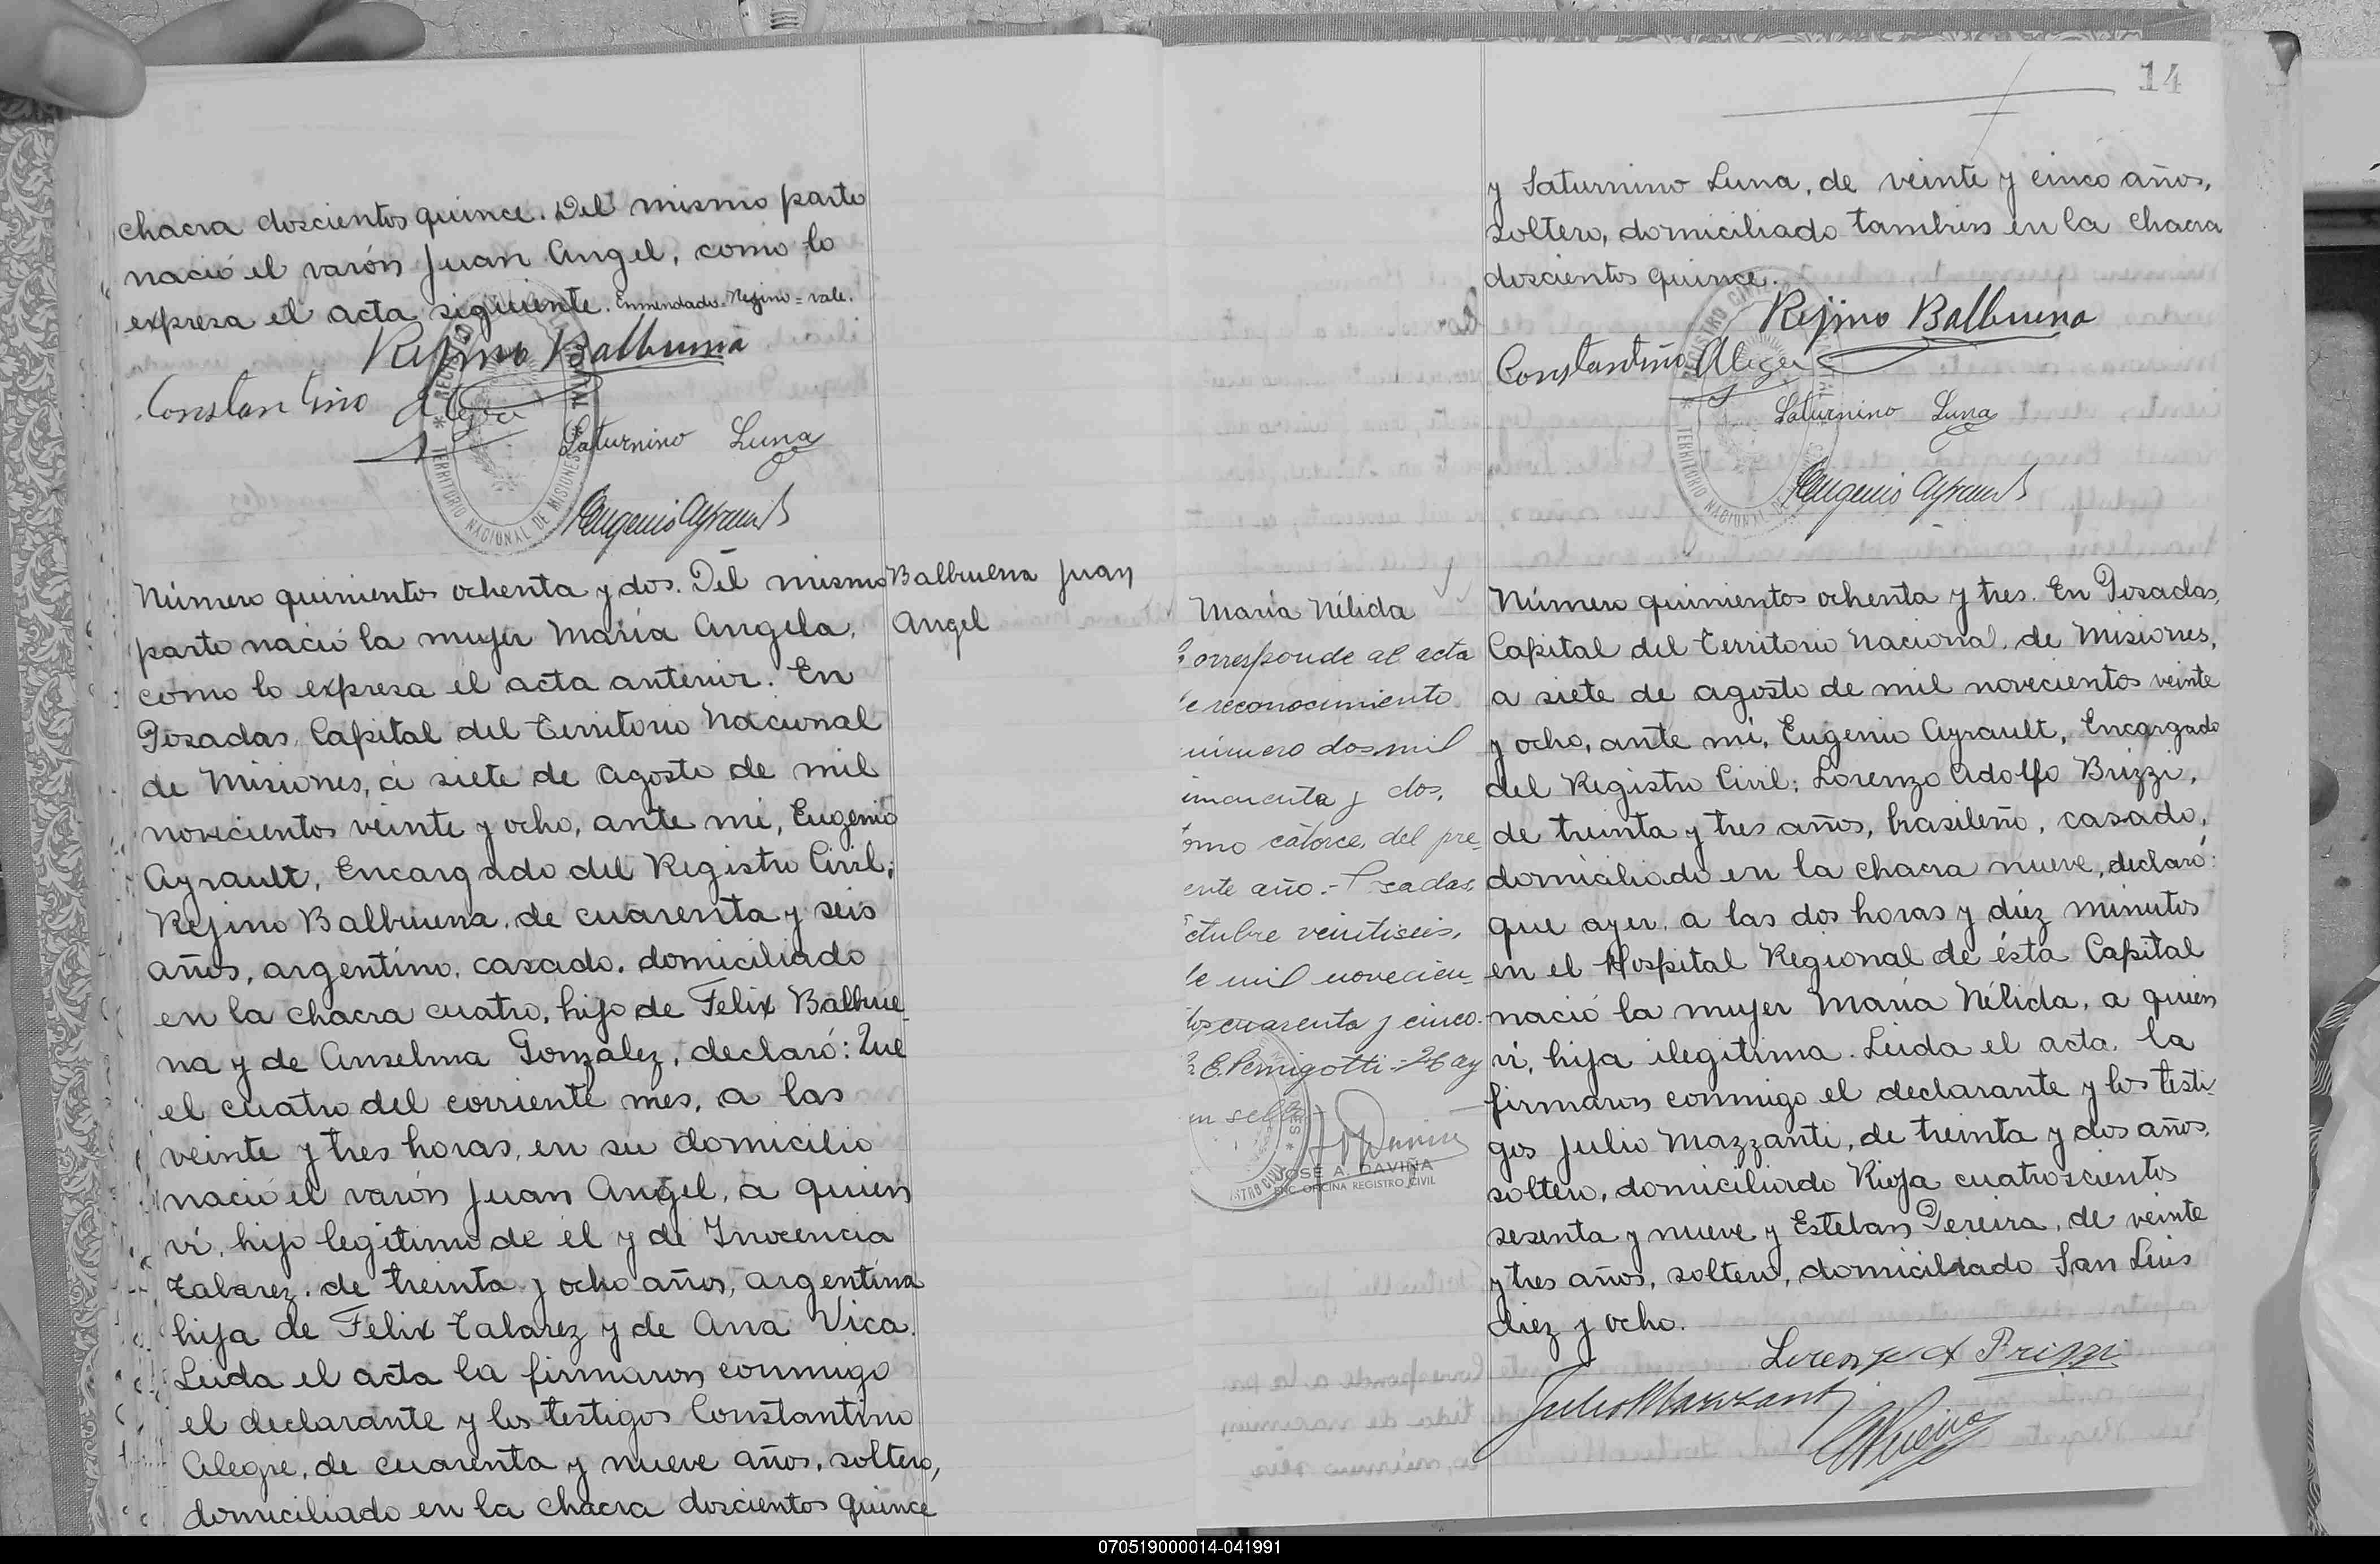 chacra doscientos quince. Del mismo parto
nació el varón Juan Angel, como lo
expresa el acta siguiente. Enmendado = Rejino = vale.
Rejino Balbuena
Constantino Alegre
Saturnino Luna
Eugenio Ayrault
REGISTRO CIVIL
TERRITORIO NACIONAL DE MISIONES
Número quinientos ochenta y dos. Del mismo
parto nació la mujer María Angela,
como lo expresa el acta anterior. En
Posadas, Capital del Territorio Nacional
de Misiones, a siete de agosto de mil
novecientos veinte y ocho, ante mí, Eugenio
Ayrault, Encargado del Registro Civil;
Rejino Balbuena, de cuarenta y seis
años, argentino, casado, domiciliado
en la chacra cuatro, hijo de Felix Balbue-
na y de Anselma Gonzalez, declaró: Que
el cuatro del corriente mes, a las
veinte y tres horas, en su domicilio
nació el varón Juan Angel, a quien
ví, hijo legítimo de él y de Inocencia
Tabarez, de treinta y ocho años, argentina
hija de Felix Tabarez y de Ana Vica.
Leida el acta la firmaron conmigo
el declarante y los testigos Constantino
Alegre, de cuarenta y nueve años, soltero,
domiciliado en la chacra doscientos quince
Balbuena Juan
Angel
14
y Saturnino Luna, de veinte y cinco años,
soltero, domiciliado tambien en la chacra
doscientos quince.
Rejino Balbuena
Constantino Alegre
Saturnino Luna
Eugenio Ayrault
REGISTRO CIVIL
TERRITORIO NACIONAL DE
María Nélida
Corresponde al acta
de reconocimiento
número dos mil
cincuenta y dos,
tomo catorce, del pre-
sente año.- Posadas,
octubre veintiseis,
de mil novecien-
tos cuarenta y cinco.-
E. Pernigotti - Hay
un sello
JOSE A. DAVIÑA
ENC. OFICINA REGISTRO CIVIL
Número quinientos ochenta y tres. En Posadas,
Capital del Territorio Nacional de Misiones,
a siete de agosto de mil novecientos veinte
y ocho, ante mí, Eugenio Ayrault, Encargado
del Registro Civil; Lorenzo Adolfo Brizzi,
de treinta y tres años, brasileño, casado,
domiciliado en la chacra nueve, declaró:
que ayer, a las dos horas y diez minutos
en el Hospital Regional de ésta Capital
nació la mujer María Nélida, a quien
ví, hija ilegítima. Leida el acta, la
firmaron conmigo el declarante y los testi-
gos Julio Mazzanti, de treinta y dos años,
soltero, domiciliado Rioja cuatroscientos
sesenta y nueve y Esteban Pereira, de veinte
y tres años, soltero, domiciliado San Luis
diez y ocho.
Lorenzo A Brizzi
Julio Mazzanti
070519000014-041991